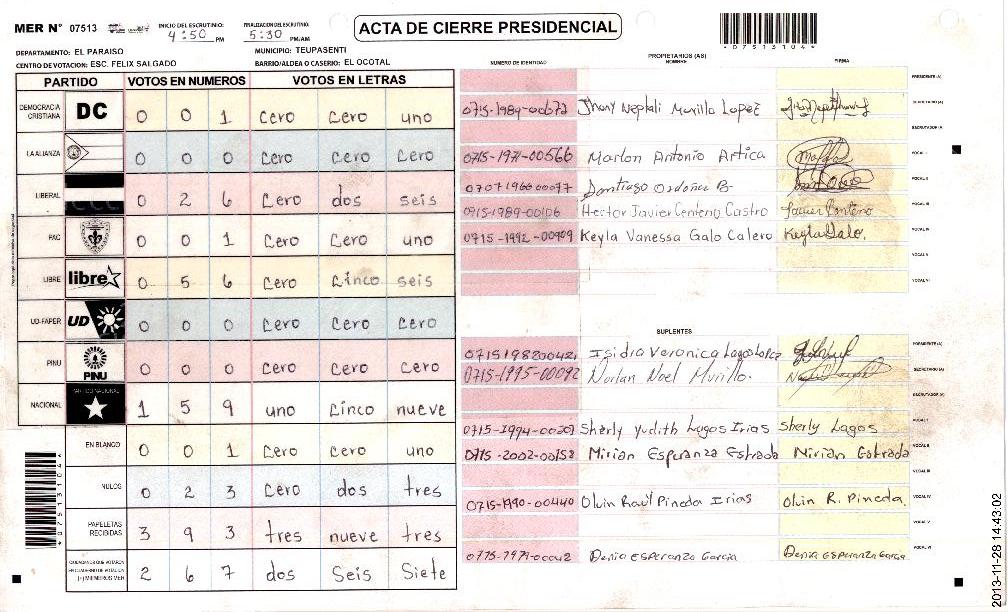 MER N° 07513
INICIO DEL ESCRUTINIO: 4:50 PM
FINALIZACION DEL ESCRUTINIO: 5:30 PM/AM
ACTA DE CIERRE PRESIDENCIAL
07513104
DEPARTAMENTO: EL PARAISO
MUNICIPIO: TEUPASENTI
CENTRO DE VOTACION: ESC. FELIX SALGADO
BARRIO/ALDEA O CASERIO: EL OCOTAL
PARTIDO VOTOS EN NUMEROS VOTOS EN LETRAS
DEMOCRACIA CRISTIANA DC 0 0 1 Cero Cero uno
LA ALIANZA 0 0 0 Cero Cero Cero
LIBERAL 0 2 6 Cero dos seis
PAC 0 0 1 Cero Cero uno
LIBRE libre 0 5 6 Cero Cinco seis
UD-FAPER UD 0 0 0 Cero Cero Cero
PINU PINU 0 0 0 Cero Cero Cero
NACIONAL PARTIDO NACIONAL 1 5 9 uno Cinco nueve
EN BLANCO 0 0 1 Cero Cero uno
NULOS 0 2 3 Cero dos tres
PAPELETAS RECIBIDAS 3 9 3 tres nueve tres
CIUDADANOS QUE VOTARON EN CUADERNO DE VOTACION (+) MIEMBROS MER 2 6 7 dos Seis Siete
07513104
PROPIETARIOS (AS)
NUMERO DE IDENTIDAD NOMBRE FIRMA
PRESIDENTE (A)
Jhony Neptali Murillo Lopez SECRETARIO (A)
ESCRUTADOR (A)
0715-1971-00566 Marlon Antonio Artica VOCAL I
Santiago Ordoñez VOCAL II
0915-1989-00106 Hector Javier Centeno Castro Javier Centeno VOCAL III
0715-1992-00909 Keyla Vanessa Galo Calero Keyla Galo. VOCAL IV
VOCAL V
VOCAL VI
SUPLENTES
Isidra Veronica Lagos Lopez PRESIDENTE (A)
0715-1995-00092 Norlan Noel Murillo. SECRETARIO (A)
ESCRUTADOR (A)
Sherly Yudith Lagos Irias Sherly Lagos VOCAL I
0715-2002-00152 Mirian Esperanza Estrada Mirian Estrada VOCAL II
VOCAL III
0715-1990-00440 Olvin Raúl Pineda Irias Olvin R. Pineda. VOCAL IV
VOCAL V
Denia Esperanza Garcia Denia Esperanza Garcia VOCAL VI
2013-11-28 14:43:02